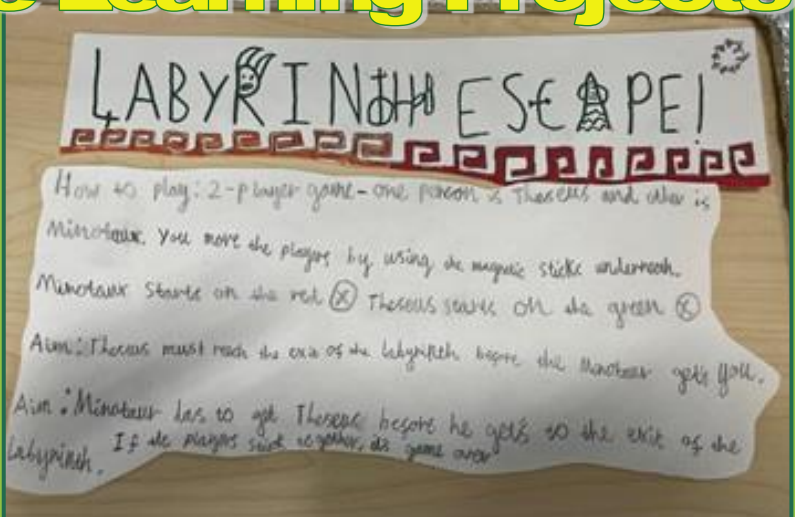 Learning Projects
LABYRINTH ESCAPE!
How to play: 2-player game - one person is Theseus and other is
Minotaur. You move the players by using the magnetic sticks underneath.
Minotaur starts on the red ⓧ Theseus starts on the green ⓧ
Aim: Theseus must reach the exit of the labyrinth before the Minotaur gets you.
Aim: Minotaur has to get Theseus before he gets to the exit of the
Labyrinth. If the players stick together, it's game over